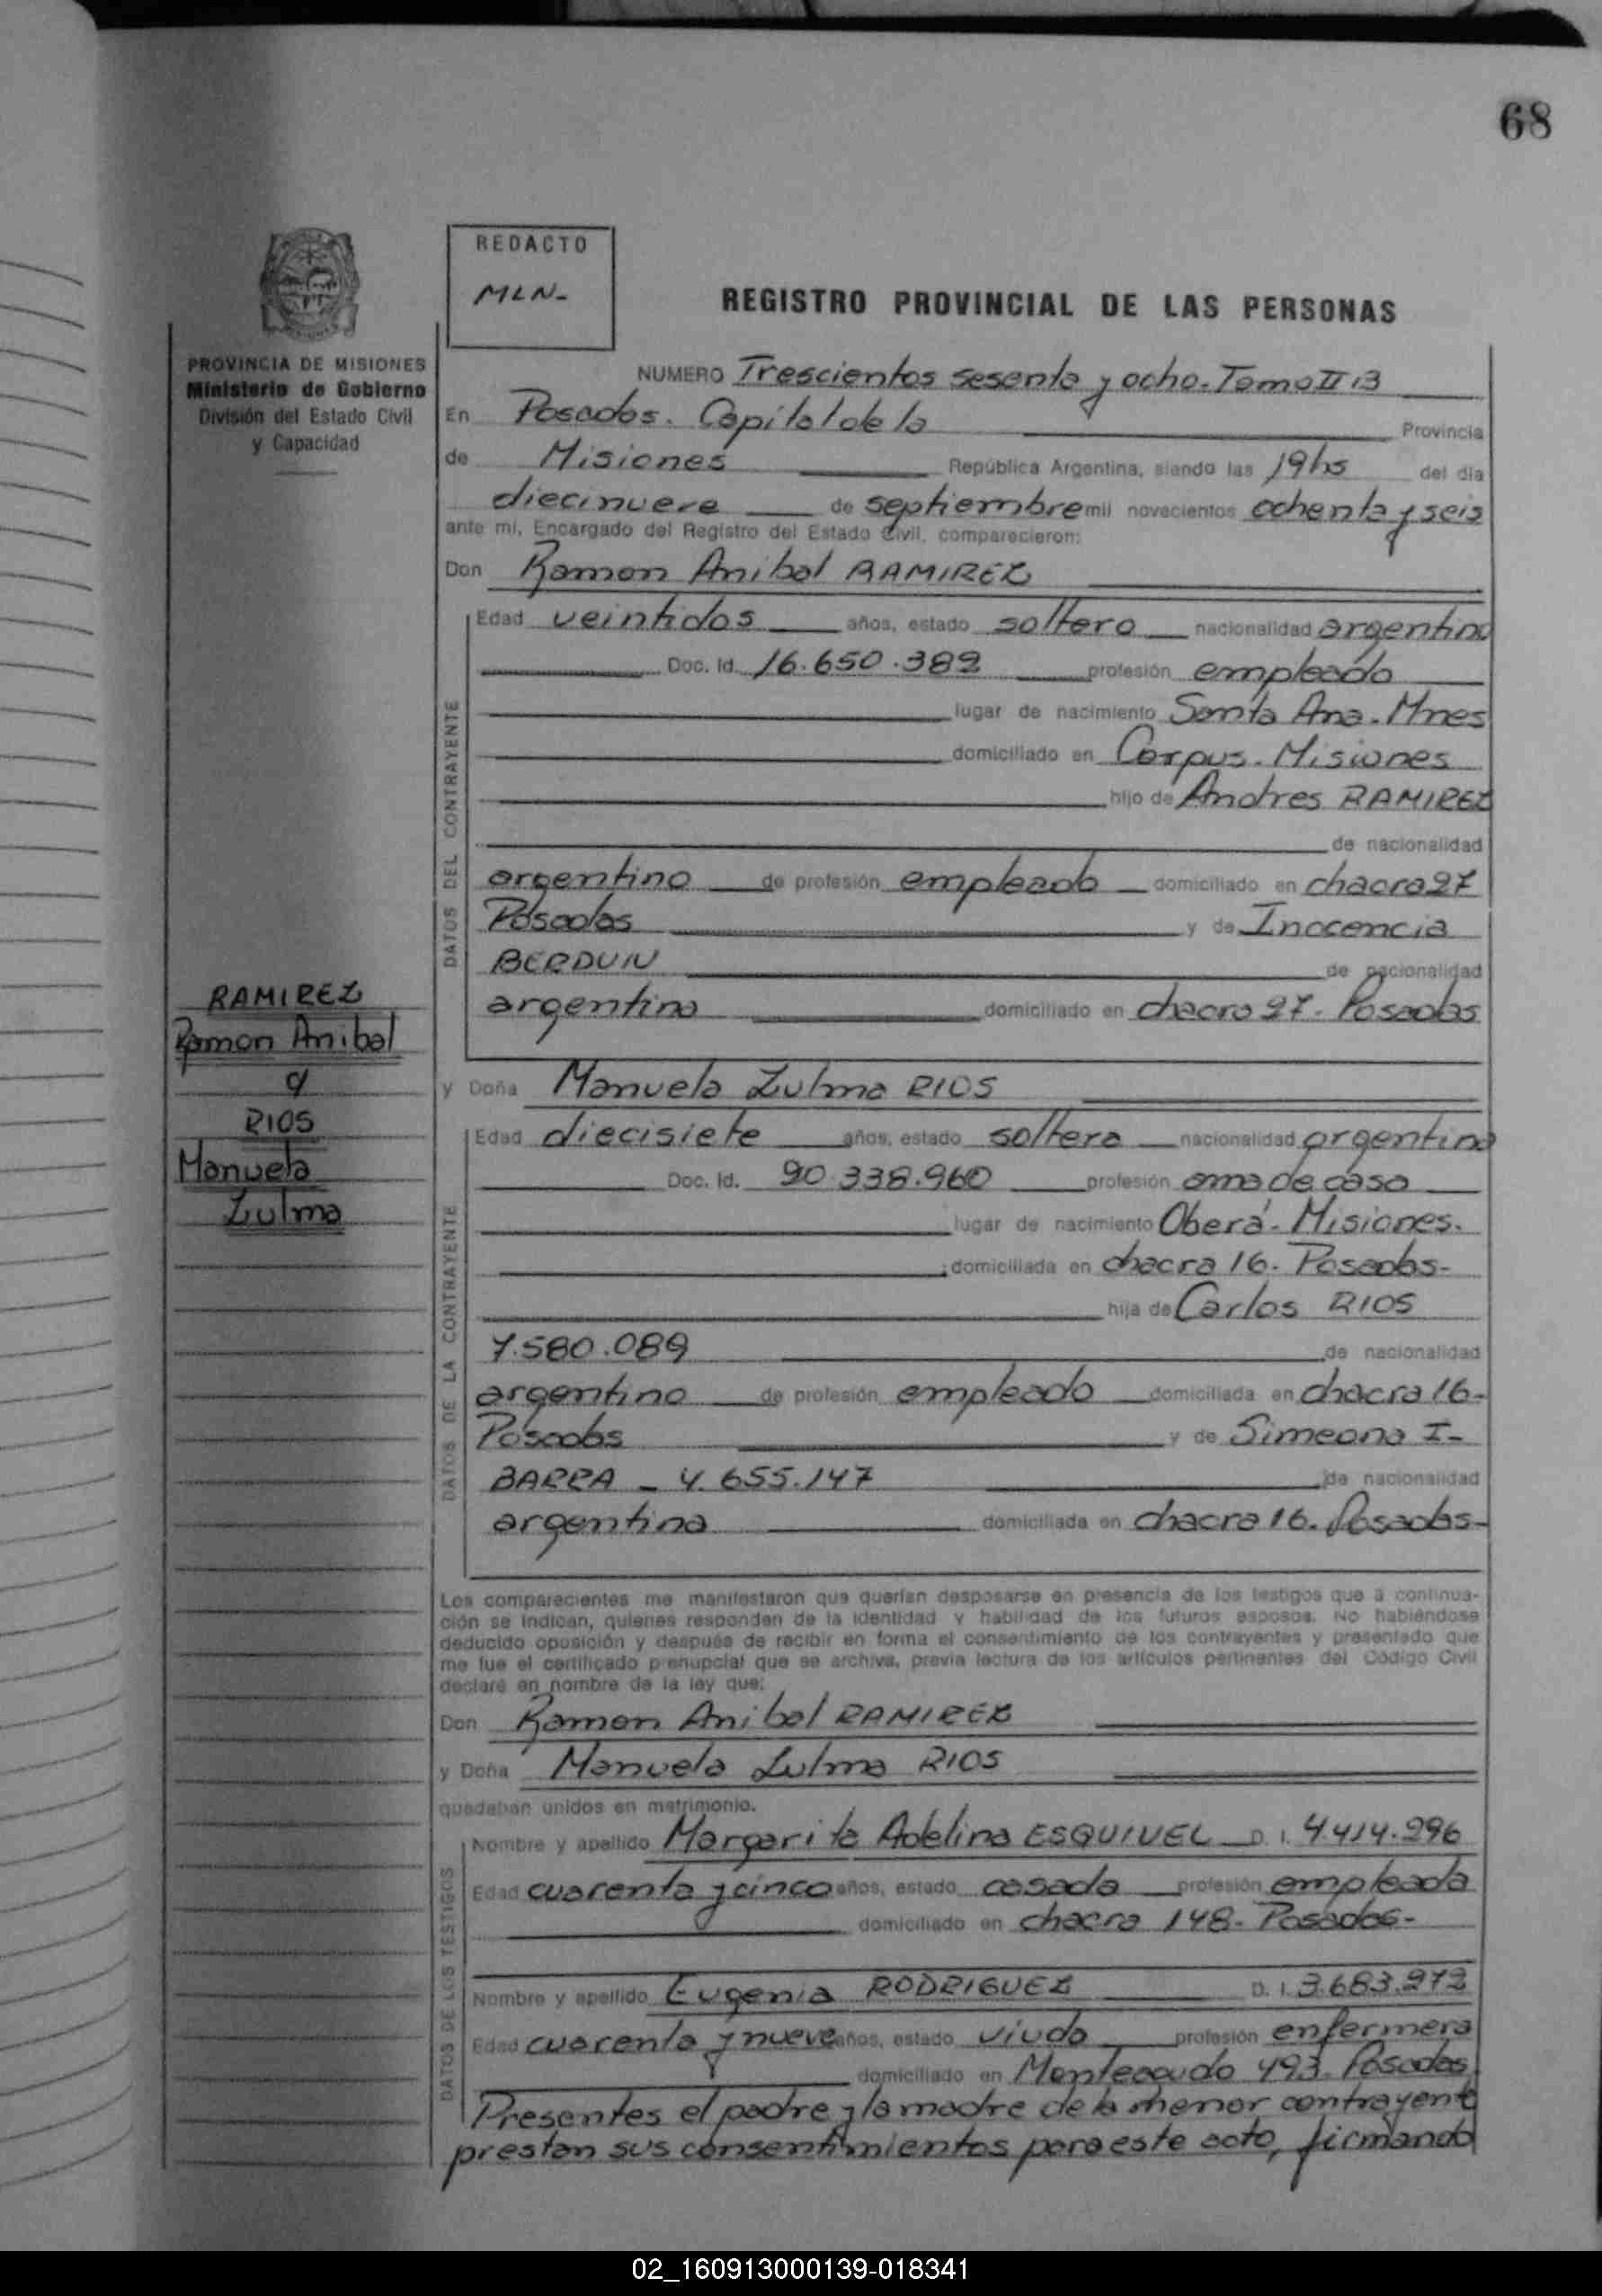 68
REDACTO
MLN-
REGISTRO PROVINCIAL DE LAS PERSONAS
PROVINCIA DE MISIONES
Ministerio de Gobierno
División del Estado Civil
y Capacidad
NUMERO Trescientos sesenta y ocho. Tomo II 13
En Posadas. Capital de la Provincia
de Misiones República Argentina, siendo las 19hs del día
diecinueve de septiembre mil novecientos ochenta y seis
ante mí, Encargado del Registro del Estado Civil, comparecieron:
Don Ramon Anibal RAMIREZ
DATOS DEL CONTRAYENTE
Edad veintidos años, estado soltero nacionalidad argentino
Doc. Id. 16.650.382 profesión empleado
lugar de nacimiento Santa Ana. Mnes
domiciliado en Corpus. Misiones
hijo de Andres RAMIREZ
de nacionalidad
argentino de profesión empleado domiciliado en chacra 27
Posadas y de Inocencia
BERDUN de nacionalidad
argentina domiciliado en chacra 27. Posadas
RAMIREZ
Ramon Anibal
y
RIOS
Manuela
Zulma
y Doña Manuela Zulma RIOS
DATOS DE LA CONTRAYENTE
Edad diecisiete años, estado soltera nacionalidad argentina
Doc. Id. 20.338.960 profesión ama de casa
lugar de nacimiento Oberá. Misiones.
domiciliada en chacra 16. Posadas-
hija de Carlos RIOS
7.580.089 de nacionalidad
argentino de profesión empleado domiciliada en chacra 16-
Posadas y de Simeona I-
BARRA - 4.655.147 de nacionalidad
argentina domiciliada en chacra 16. Posadas-
Los comparecientes me manifestaron que querían desposarse en presencia de los testigos que a continua-
ción se indican, quienes responden de la identidad y habilidad de los futuros esposos. No habiéndose
deducido oposición y después de recibir en forma el consentimiento de los contrayentes y presentado que
me fue el certificado prenupcial que se archiva, previa lectura de los artículos pertinentes del Código Civil
declaré en nombre de la ley que:
Don Ramon Anibal RAMIREZ
y Doña Manuela Zulma RIOS
quedaban unidos en matrimonio.
DATOS DE LOS TESTIGOS
Nombre y apellido Margarita Adelina ESQUIVEL D. I. 4.414.296
Edad cuarenta y cinco años, estado casada profesión empleada
domiciliado en chacra 148. Posadas-
Nombre y apellido Eugenia RODRIGUEZ D. I. 3.683.272
Edad cuarenta y nueve años, estado viuda profesión enfermera
domiciliado en Monteagudo 493. Posadas
Presentes el padre y la madre de la menor contrayente
prestan sus consentimientos para este acto, firmando
02_160913000139-018341